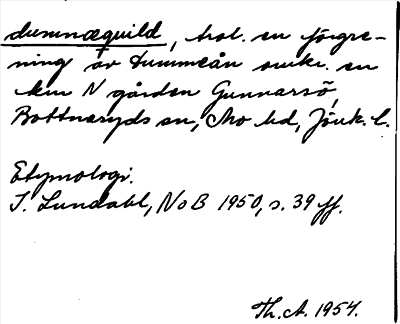 dummæquild, trol. en förgre-
ning av Dummeån omkr. en
km N gården Gunnarsö,
Bottnaryds sn, Mo hd, Jönk. l.
Etymologi.
I. Lundahl, NoB 1950, s. 39 ff.
Th. A. 1954.